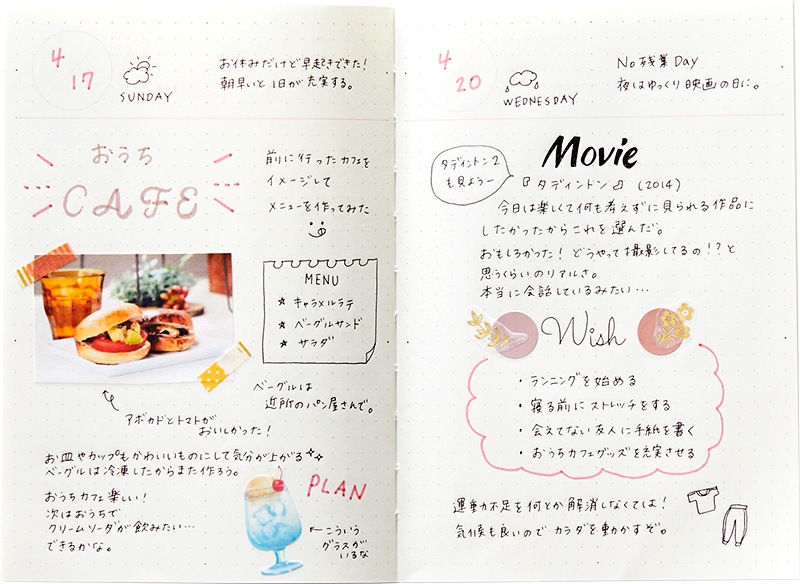 4
17
SUNDAY
お休みだけど早起きできた!
朝早いと1日が充実する。
おうち
CAFE
前に行ったカフェを
イメージして
メニューを作ってみた
MENU
★ キャラメルラテ
★ ベーグルサンド
★ サラダ
ベーグルは
近所のパン屋さんで。
アボカドとトマトが
おいしかった!
お皿やカップもかわいいものにして気分が上がる
ベーグルは冷凍したからまた作ろう。
おうちカフェ楽しい!
次はおうちで
クリームソーダが飲みたい…
できるかな。
PLAN
←こういう
グラスが
いるな
4
20
WEDNESDAY
No残業Day
夜はゆっくり映画の日に。
Movie
タディントン2
も見よう〜
『タディントン』(2014)
今日は楽しくて何も考えずに見られる作品に
したかったからこれを選んだ。
おもしろかった!どうやって撮影してるの!?と
思うくらいのリアルさ。
本当に会話しているみたい…
Wish
・ランニングを始める
・寝る前にストレッチをする
・会えてない友人に手紙を書く
・おうちカフェグッズを充実させる
運動不足を何とか解消しなくては!
気候も良いのでカラダを動かすぞ。